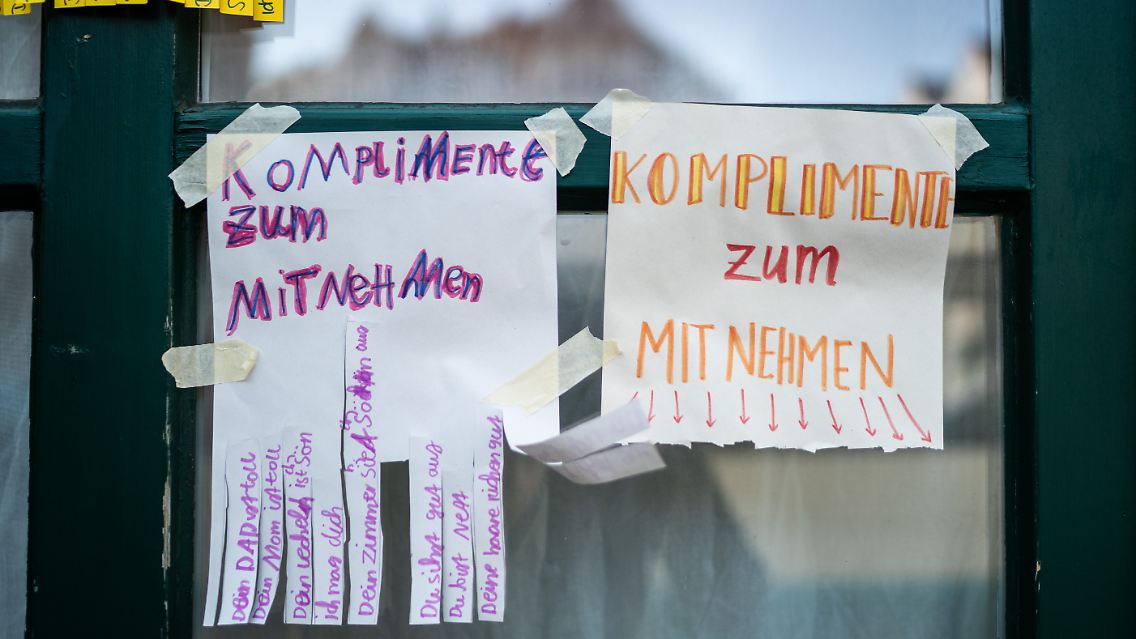 KOMPLIMENTE
ZUM
MITNEHMEN
Dein DAD ist toll
Dein Mom ist toll
Dein lecheln ist Sön
ich mag dich
Dein zimmer sieht aus
Du sihst gut aus
Du bist nett
Deine haare richen gut
KOMPLIMENTE
zum
MITNEHMEN